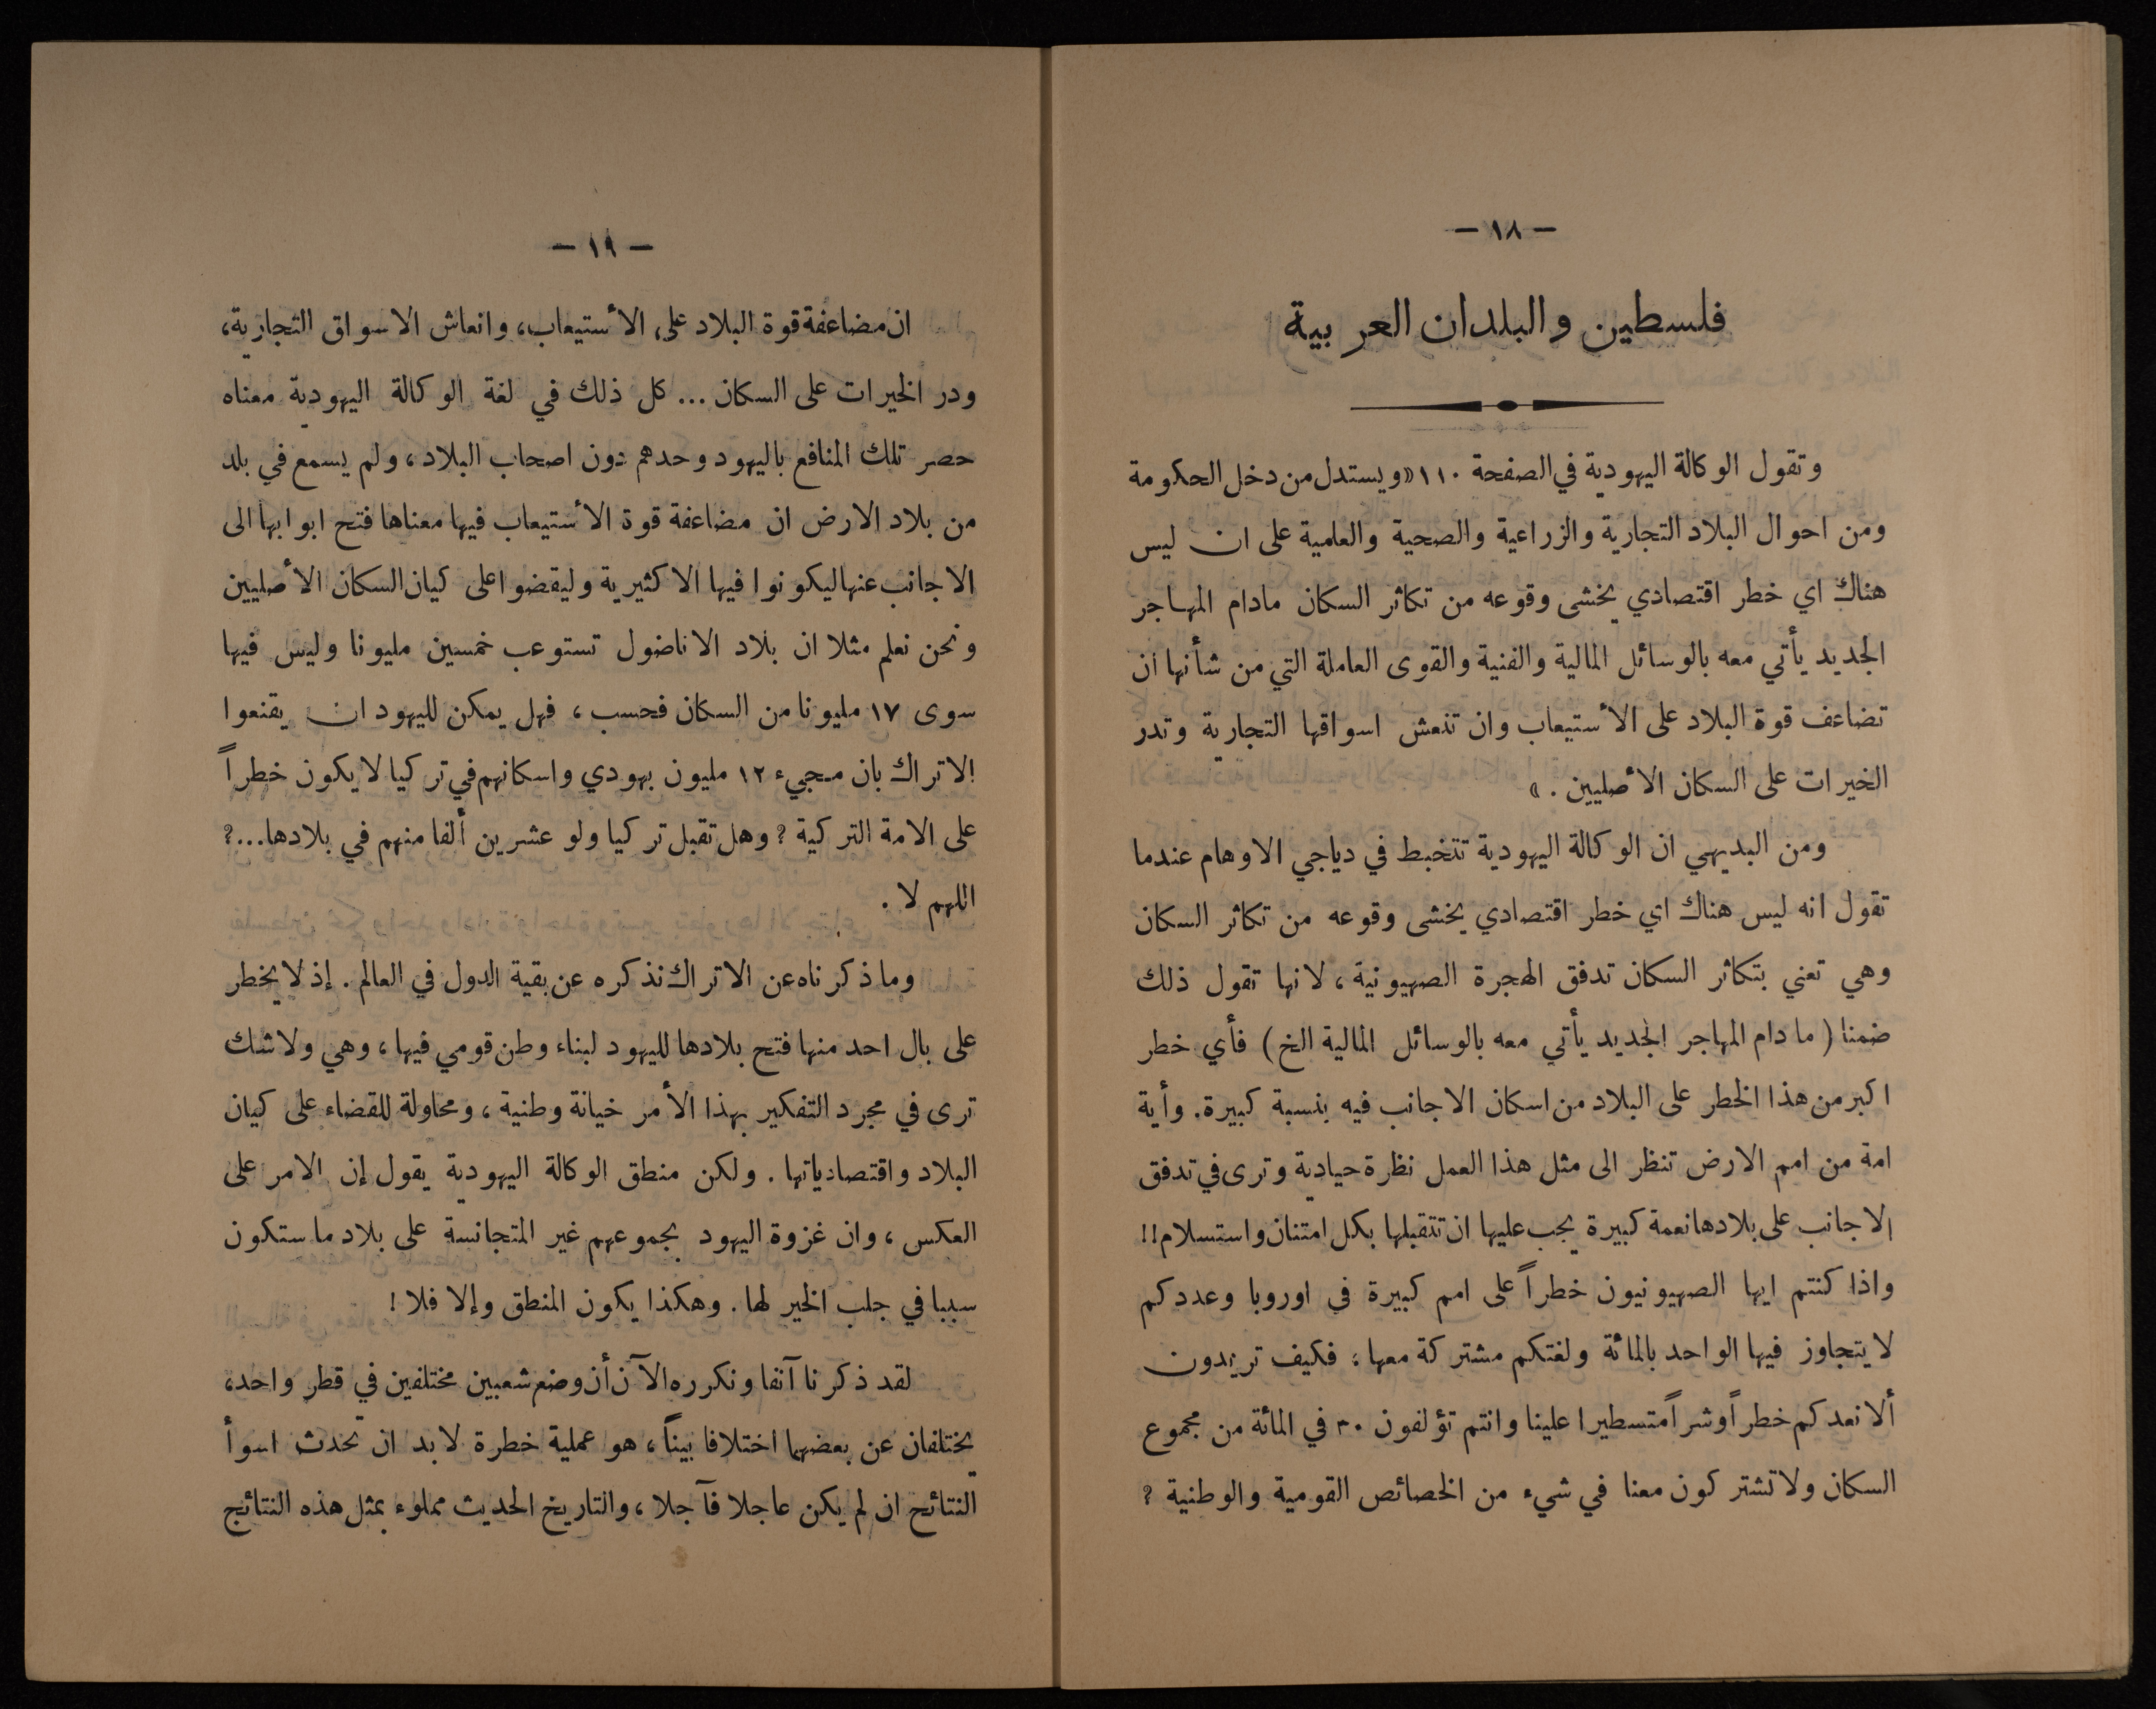 — ١٨ —
فلسطين والبلدان العربية
وتقول الوكالة اليهودية في الصفحة ١١٠ «ويستدل من دخل الحكومة
ومن احوال البلاد التجارية والزراعية والصحية والعلمية على ان ليس
هناك اي خطر اقتصادي يخشى وقوعه من تكاثر السكان مادام المهاجر
الجديد يأتي معه بالوسائل المالية والفنية والقوى العاملة التي من شأنها ان
تضاعف قوة البلاد على الأستيعاب وان تنعش اسواقها التجارية وتدر
الخيرات على السكان الأصليين . »
ومن البديهي ان الوكالة اليهودية تتخبط في دياجي الاوهام عندما
تقول انه ليس هناك اي خطر اقتصادي يخشى وقوعه من تكاثر السكان
وهي تعني بتكاثر السكان تدفق الهجرة الصهيونية ، لانها تقول ذلك
ضمنا ( ما دام المهاجر الجديد يأتي معه بالوسائل المالية الخ ) فأي خطر
اكبر من هذا الخطر على البلاد من اسكان الاجانب فيه بنسبة كبيرة. وأية
امة من امم الارض تنظر الى مثل هذا العمل نظرة حيادية وترى في تدفق
الاجانب على بلادها نعمة كبيرة يجب عليها ان تتقبلها بكل امتنان واستسلام !!
واذا كنتم ايها الصهيونيون خطراً على امم كبيرة في اوروبا وعددكم
لا يتجاوز فيها الواحد بالمائة ولغتكم مشتركة معها ، فكيف تريدون
ألا نعدكم خطراً وشراً متسطيرا علينا وانتم تؤلفون ٣٠ في المائة من مجموع
السكان ولا تشتركون معنا في شيء من الخصائص القومية والوطنية ؟
— ١٩ —
ان مضاعفة قوة البلاد على الأستيعاب، وانعاش الاسواق التجارية،
ودر الخيرات على السكان ... كل ذلك في لغة الوكالة اليهودية معناه
حصر تلك المنافع باليهود وحدهم دون اصحاب البلاد ، ولم يسمع في بلد
من بلاد الارض ان مضاعفة قوة الأستيعاب فيها معناها فتح ابوابها الى
الاجانب عنها ليكونوا فيها الاكثيرية وليقضوا على كيان السكان الأصليين
ونحن نعلم مثلا ان بلاد الاناضول تستوعب خمسين مليونا وليس فيها
سوى ١٧ مليونا من السكان فحسب ، فهل يمكن لليهود ان يقنعوا
الاتراك بان مجيء ١٢ مليون يهودي واسكانهم في تركيا لا يكون خطراً
على الامة التركية ؟ وهل تقبل تركيا ولو عشرين ألفا منهم في بلادها...؟
اللهم لا .
وما ذكرناه عن الاتراك نذكره عن بقية الدول في العالم . إذ لا يخطر
على بال احد منها فتح بلادها لليهود لبناء وطن قومي فيها ، وهي ولا شك
ترى في مجرد التفكير بهذا الأمر خيانة وطنية ، ومحاولة للقضاء على كيان
البلاد واقتصادياتها . ولكن منطق الوكالة اليهودية يقول إن الامر على
العكس ، وان غزوة اليهود بجموعهم غير المتجانسة على بلاد ما ستكون
سببا في جلب الخير لها . وهكذا يكون المنطق وإلا فلا !
لقد ذكرنا آنفا ونكرره الآن أن وضع شعبين مختلفين في قطر واحد،
يختلفان عن بعضهما اختلافا بيناً ، هو عملية خطرة لا بد ان تحدث اسوأ
النتائج ان لم يكن عاجلا فآجلا ، والتاريخ الحديث مملوء بمثل هذه النتائج